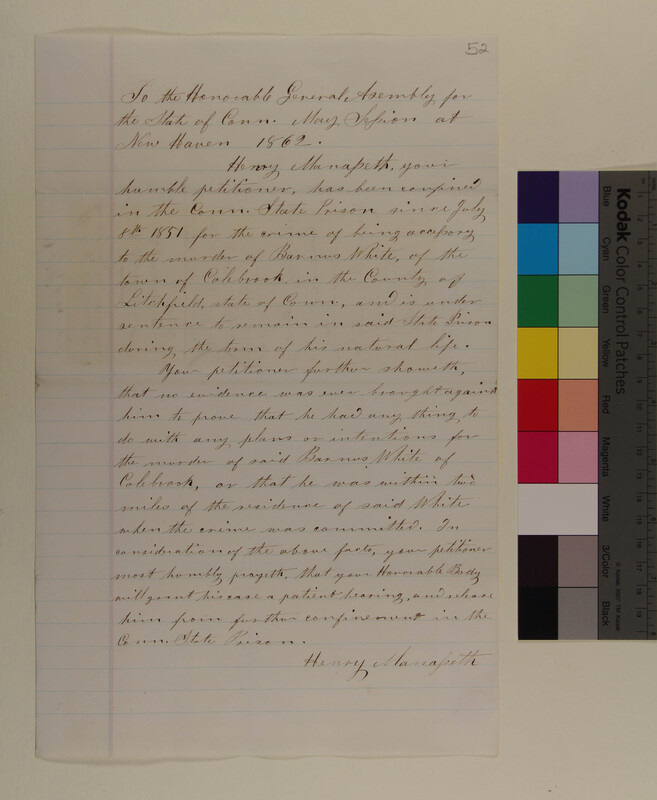 52
To the Honorable General Asembly for
the State of Conn. May Session at
New Haven 1862.
Henry Manasseth, your
humble petitioner, has been confined
in the Conn. State Prison since July
8th 1851 for the crime of being accesory
to the murder of Barnus White, of the
town of Colebrook, in the County of
Litchfield, state of Conn, and is under
sentence to remain in said State Prison
during the term of his natural life.
Your petitioner further showeth,
that no evidence was ever brought against
him to prove that he had any thing to
do with any plans or intentions for
the murder of said Barnus White of
Colebrook, or that he was within two
miles of the residence of said White
when the crime was committed. In
consideration of the above facts, your petitioner
most humbly prayeth, that your Honorable Body
will grant his case a patient hearing, and release
him from further confinement in the
Conn. State Prison.
Henry Manasseth
Kodak Color Control Patches
Blue
Cyan
Green
Yellow
Red
Magenta
White
3/Color
Black